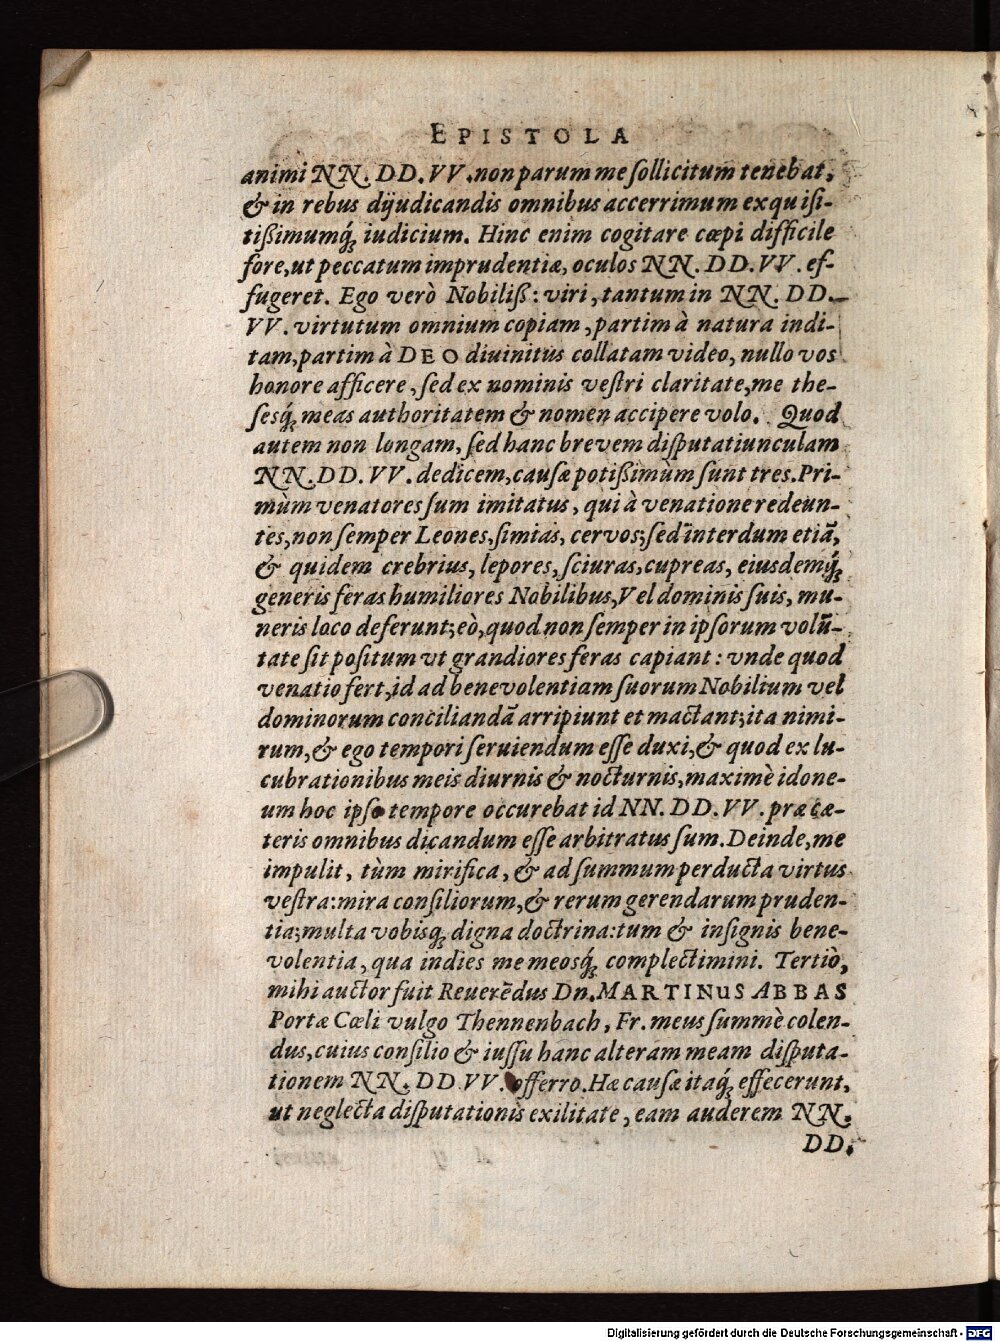 EPISTOLA
animi NN. DD. VV. non parum me ſollicitum tenebat,
& in rebus dijudicandis omnibus accerrimum exquiſi-
tißimumq́ꝫ iudicium. Hinc enim cogitare cœpi difficile
fore, ut peccatum imprudentiæ, oculos NN. DD. VV. ef-
fugeret. Ego verò Nobiliß: viri, tantum in NN. DD.
VV. virtutum omnium copiam, partim à natura indi-
tam, partim à DEO diuinitus collatam video, nullo vos
honore afficere, ſed ex nominis veſtri claritate, me the-
ſesq́ꝫ meas authoritatem & nomen accipere volo. Quod
autem non longam, ſed hanc brevem diſputatiunculam
NN. DD. VV. dedicem, cauſæ potißimùm ſunt tres. Pri-
mùm venatores ſum imitatus, qui à venatione redeun-
tes, non ſemper Leones, ſimias, cervos; ſed interdum etiã,
& quidem crebrius, lepores, ſciuras, cupreas, eiusdemq́ꝫ
generis feras humiliores Nobilibus, Vel dominis ſuis, mu-
neris loco deferunt; eò, quod non ſemper in ipſorum volũ-
tate ſit poſitum vt grandiores feras capiant: vnde quod
venatio fert, id ad benevolentiam ſuorum Nobilium vel
dominorum conciliandã arripiunt et mactant; ita nimi-
rum, & ego tempori ſeruiendum eſſe duxi, & quod ex lu-
cubrationibus meis diurnis & nocturnis, maximè idone-
um hoc ipſo tempore occurebat id NN. DD. VV. præ cæ-
teris omnibus dicandum eſſe arbitratus ſum. Deinde, me
impulit, tùm mirifica, & ad ſummum perducta virtus
veſtra: mira conſiliorum, & rerum gerendarum pruden-
tia; multa vobisqꝫ digna doctrina: tum & inſignis bene-
volentia, qua indies me meosq́ꝫ complectimini. Tertiò,
mihi auctor fuit Reuerẽdus Dn. MARTINUS ABBAS
Portæ Cœli vulgo Thennenbach, Fr. meus ſummè colen-
dus, cuius conſilio & iuſſu hanc alteram meam diſputa-
tionem NN. DD. VV. offerro. Hæ cauſæ itaq́ꝫ effecerunt,
ut neglecta diſputationis exilitate, eam auderem NN.
DD.
Digitalisierung gefördert durch die Deutsche Forschungsgemeinschaft - DFG